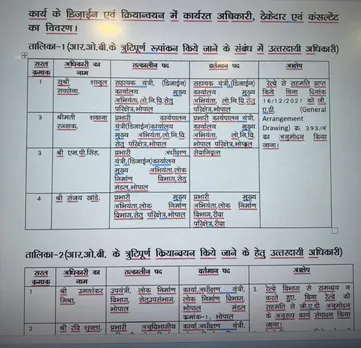 कार्य के डिजाईन एवं क्रियान्वयन में कार्यरत अधिकारी, ठेकेदार एवं कंसल्टेंट
का विवरण।
तालिका-1(आर.ओ.बी.के त्रुटिपूर्ण रूपांकन किये जाने के संबंध में उत्तरदायी अधिकारी)
सरल क्रमांक अधिकारी का नाम तत्कालीन पद वर्तमान पद आक्षेप
1 सुश्री शानुल सक्सेना, सहायक यंत्री,(डिजाईन) कार्यालय मुख्य अभियंता,लो.नि.वि.सेतु परिक्षेत्र,भोपाल सहायक यंत्री,(डिजाईन) कार्यालय मुख्य अभियंता,लो.नि.वि.सेतु परिक्षेत्र,भोपाल
रेल्वे से सहमति प्राप्त किये बिना दिनांक 16/12/2021 को जी.ए.डी. (General Arrangement Drawing) क्र. 393/अ का अनुमोदन किया जाना
3 श्रीमती शबाना रज्जाक, प्रभारी कार्यपालन यंत्री(डिजाईन)कार्यालय मुख्य अभियंता,लो.नि.वि. सेतु परिक्षेत्र,भोपाल प्रभारी कार्यपालन यंत्री(डिजाईन)कार्यालय मुख्य अभियंता,लो.नि.वि. सेतु परिक्षेत्र,भोपाल
3 श्री एम.पी.सिंह, प्रभारी अधीक्षण यंत्री,(डिजाईन)कार्यालय मुख्य अभियंता,लोक निर्माण विभाग,सेतु मंडल,भोपाल सेवानिवृत्त
4 श्री संजय खांडे, प्रभारी मुख्य अभियंता,लोक निर्माण विभाग,सेतु परिक्षेत्र,भोपाल प्रभारी मुख्य अभियंता,लोक निर्माण विभाग,रीवा परिक्षेत्र,रीवा
तालिका-2(आर.ओ.बी. के त्रुटिपूर्ण क्रियान्वयन किये जाने के हेतु उत्तरदायी अधिकारी)
सरल क्रमांक अधिकारी का नाम तत्कालीन पद वर्तमान पद आक्षेप
1 श्री उमाशंकर मिश्रा, उपयंत्री, लोक निर्माण विभाग,सेतु,उपसंभाग, भोपाल कार्या.अधीक्षण यंत्री, लोक निर्माण विभाग, मंडल क्रमांक-1, भोपाल
1. रेल्वे विभाग से समन्वय न करते हुए, बिना रेल्वे की सहमति से जी.ए.डी अनुमोदन के अनुरूप कार्य संपादन किया जाना।
2 श्री रवि शुक्ला, प्रभारी अनुविभागीय कार्या.अधीक्षण यंत्री,